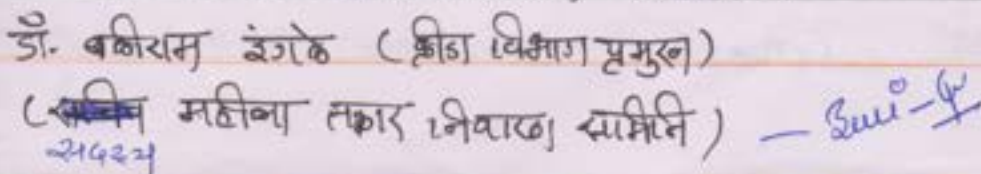 डॉ. बळीराम इंगळे (क्रीडा विभाग प्रमुख)
(सचिव महीला तक्रार निवारण समिति)
सदस्य